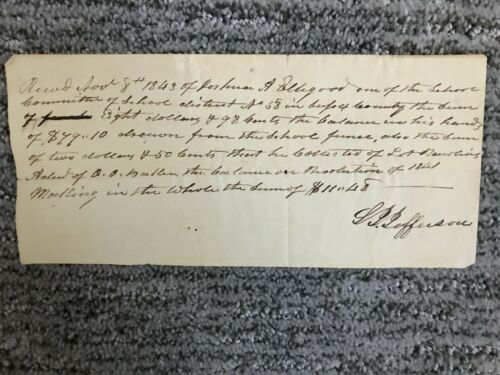 Recvd Novr 8th 1843 of Joshua A Ellegood one of the School
Committee of School district No 58 in Sussex County the Sum
of Eight dollars & 98 Cents the balance in his hands
of $79..10 drawn from the School fund, also the Sum
of two dollars & 50 Cents that he Collected of Lot Rawlins
Admr of the balance on Resolution of 1841
Making in the Whole the Sum of $11..48
Jefferson